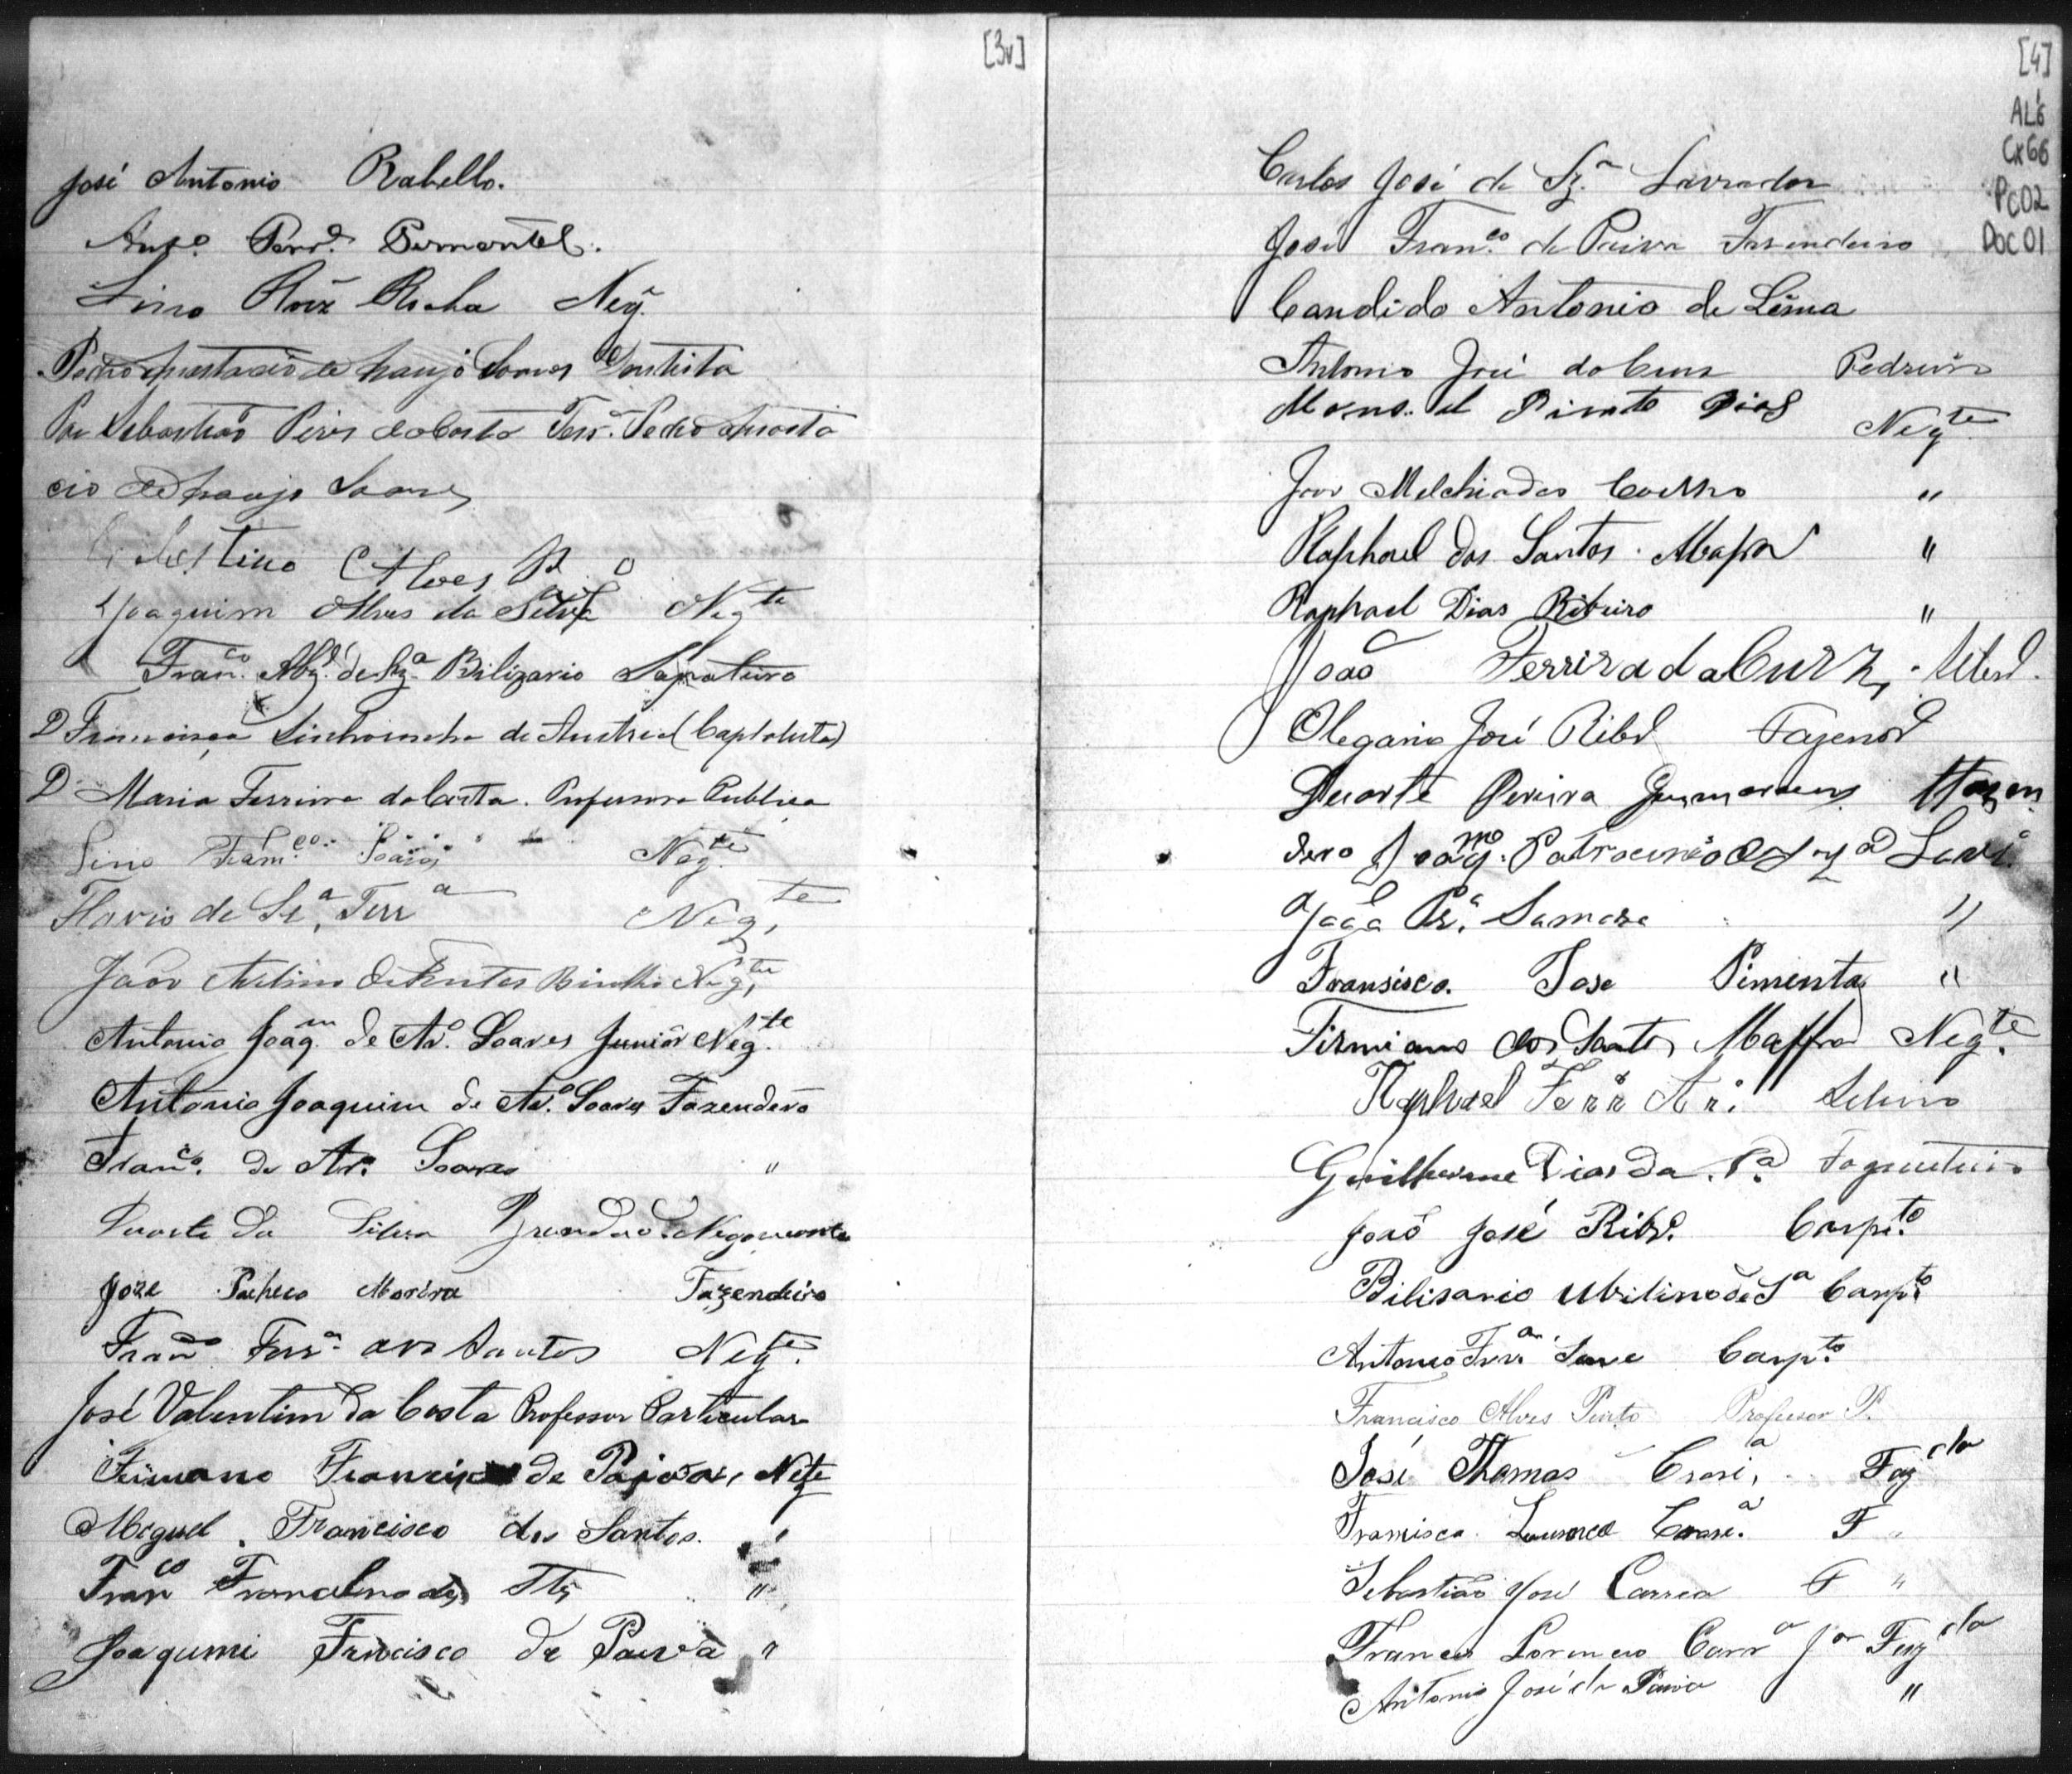 [3v]
José Antonio Rabello.
Antº. Perrª. Pimentel.
Lino Roiz Rocha Neg.
Pedro Anastacio de Araujo Soares Dentista
Por Sebastiaõ Pires da Costa Ferr.ª Pedro Anasta
cio de Araujo Soares
Celestino Alves R
Joaquim Alves da Silvª Neg.te
Fran.co Alz. de Sz.ª Bilizario Sapateiro
D Francisca Sinhorinha de Austria (Capitalista)
D Maria Ferreira da Costa. Professora Publica
Lino Fram.co Soares Neg.te
Flavio de Sª. Ferrª Neg.te
João Avelino de Fontes Binotti Neg.te
Antonio Joaq.m de Arº. Soares Junior Neg.te
Antonio Joaquim de Arº. Soares Fazendero
Franco. de Arº. Soares "
Duarte da Silva Brandaõ. Negociante
Joze Pacheco Morera Fazendeiro
Franco Ferrª dos Santos Neg.te
José Valentim da Costa Professor Particular
Firmano Francisco de Paiva, Negte
Meguel Francisco dos Santos. "
Franco Francelino de "
Joaqumi Frncisco de Paiva "
[4]
AL6
Cx66
PC02
DOC01
Carlos José de Sz.ª Lavrador
José Fran.co de Paiva Fazendeiro
Candido Antonio de Lima
Antonio José da Cruz Pedreiro
Manoel Pinto Dias Neg.te
João Melchiades Coelho "
Raphael dos Santos Mafra "
Raphael Dias Ribeiro "
Joaõ Ferrira da Curz,
Olegario José Ribº Fazendº
Duarte Pereira Guimaraens Fazen
dero Joaq.mo Patrocinio Lavr.
João Prª. Samora "
Fransisco. Jose Pimenta "
Firmiano dos Santos Maffra Neg.te
Raphael Ferr Arº. Seleiro
Guilherme Dias da Sª. Fogueteiro
Joaõ José Ribrº. Carpto.
Bilisario Ubilino de Sª Carpto
Antonio Ferrª. Carpto.
Francisco Alves Pinto Professor P.
José Thomas Corrêª. Fazdo
Francisco Lourenço Correª. F "
Sebastião José Correa F "
Franco Lorenco Corrª Jor Fazdo
Antonio José de Paiva "